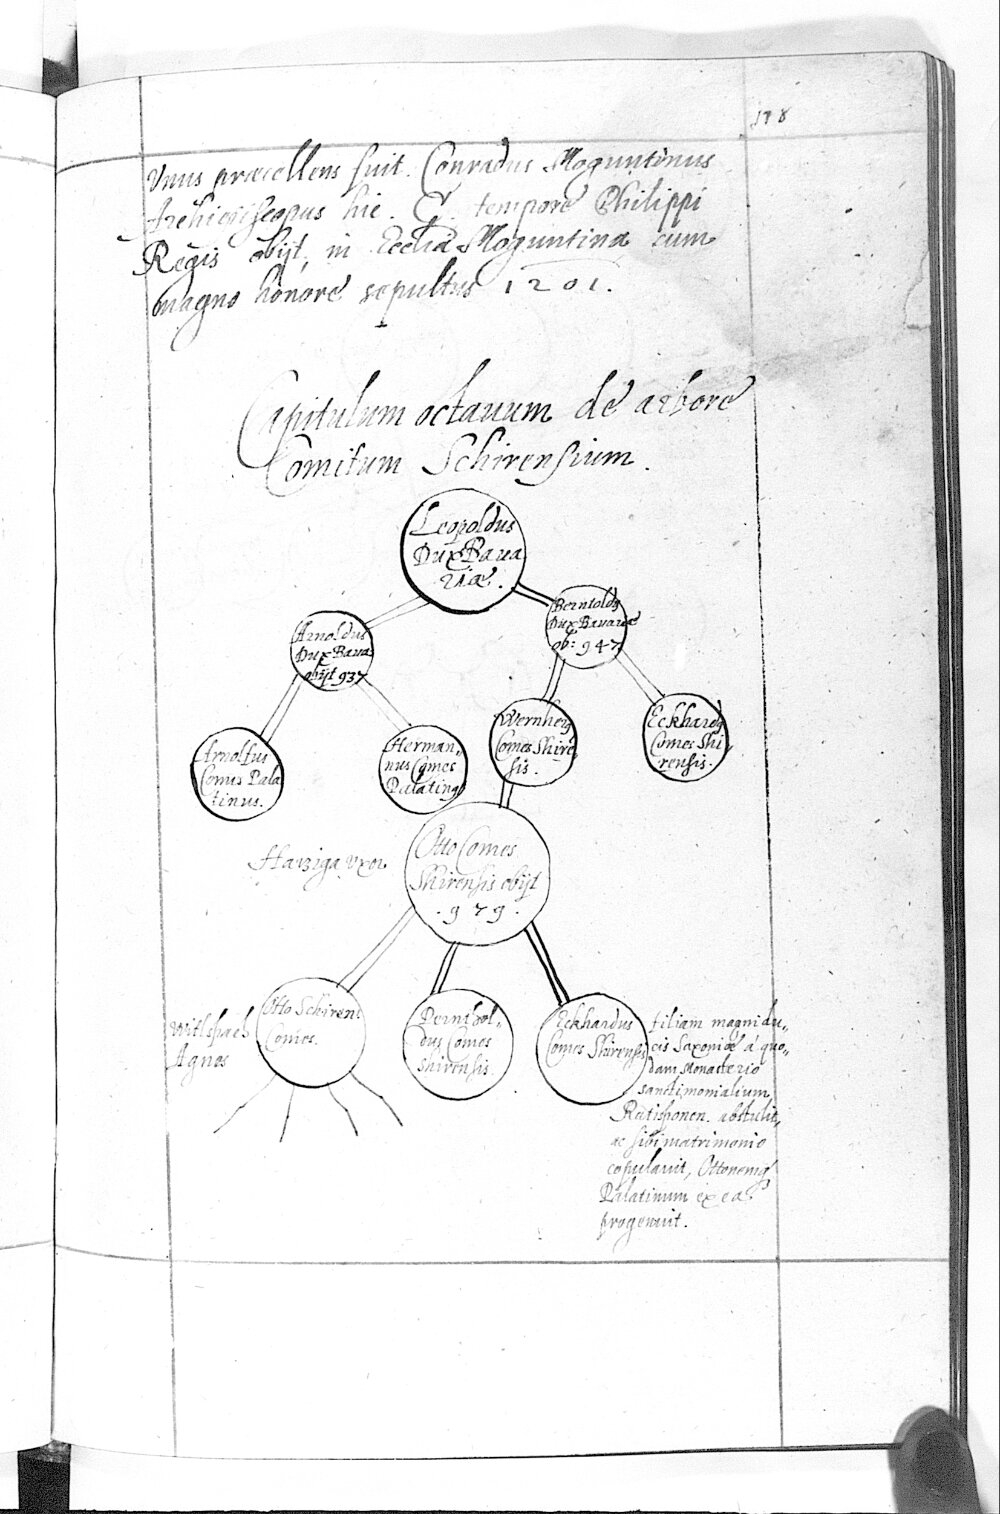 178
Vnus præcellens fuit. Conradus Moguntinus
Archiepiscopus hic. Et tempore Philippi
Regis obijt, in Eccliâ Moguntina cum
magno honore sepultus 1201.
Capitulum octauum de arbore
Comitum Schirensium.
Leopoldus
Dux Baua
riæ.
Arnoldus
Dux Baua
obijt 937
Berntoldq
Dux Bauariæ
ob: 947
Arnolfus
Comes Pala
tinus.
Herman„
nus Comes
Palatinq
Wernherq
Comes Shire„
sis.
Eckhardq
Comes Shi„
rensis.
Harziga vxor
Otto Comes
Shirensis obijt
.979.
Agnes
Otto Schirens
Comes.
Pernthol„
dus Comes
Shirensis.
Eckhardus
Comes Shirensis
filiam magni du„
cis Saxoniæ â quo„
dam Monasterio
sanctimonialium
Ratisponen. abstulit,
ac sibi matrimonio
copulauit, Ottonemq
Palatinum ex ea
progenuit.